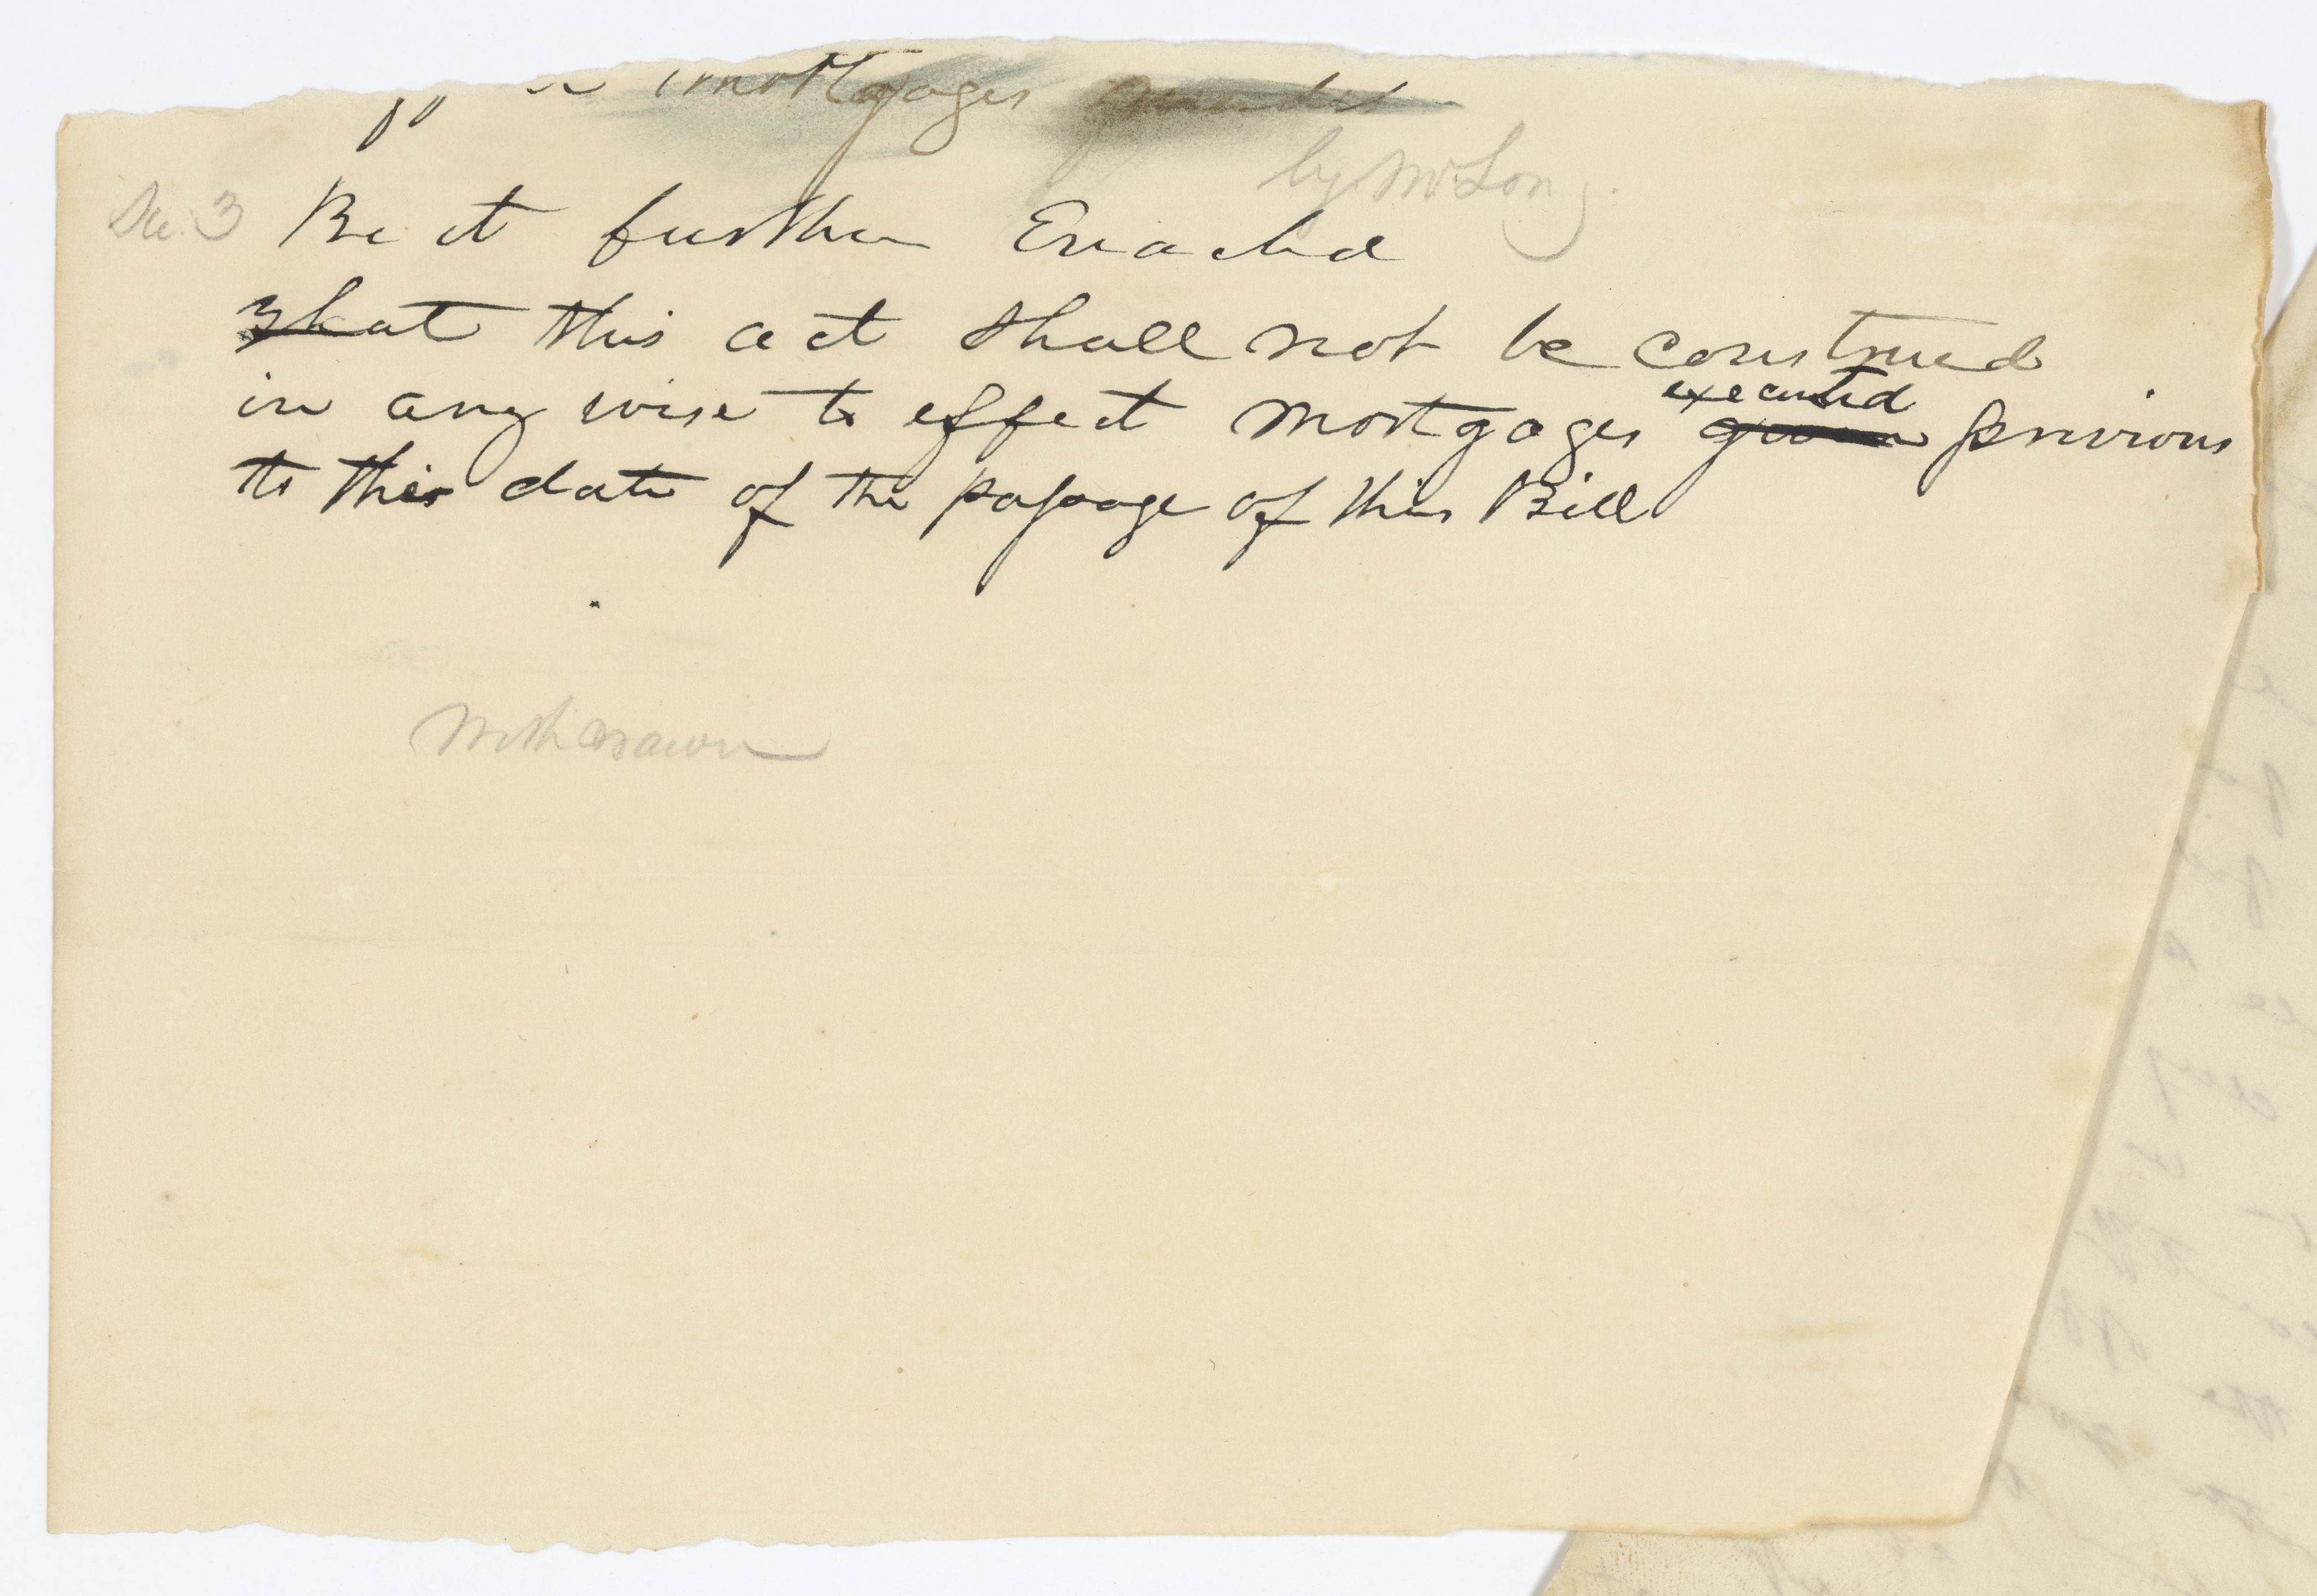 mortgages
by Mr Long.
Sec. 3 Be it further Enacted
that this act shall not be construed
in any wise to effect mortgages executed given previous
to this date of the passage of this Bill
Withdrawn